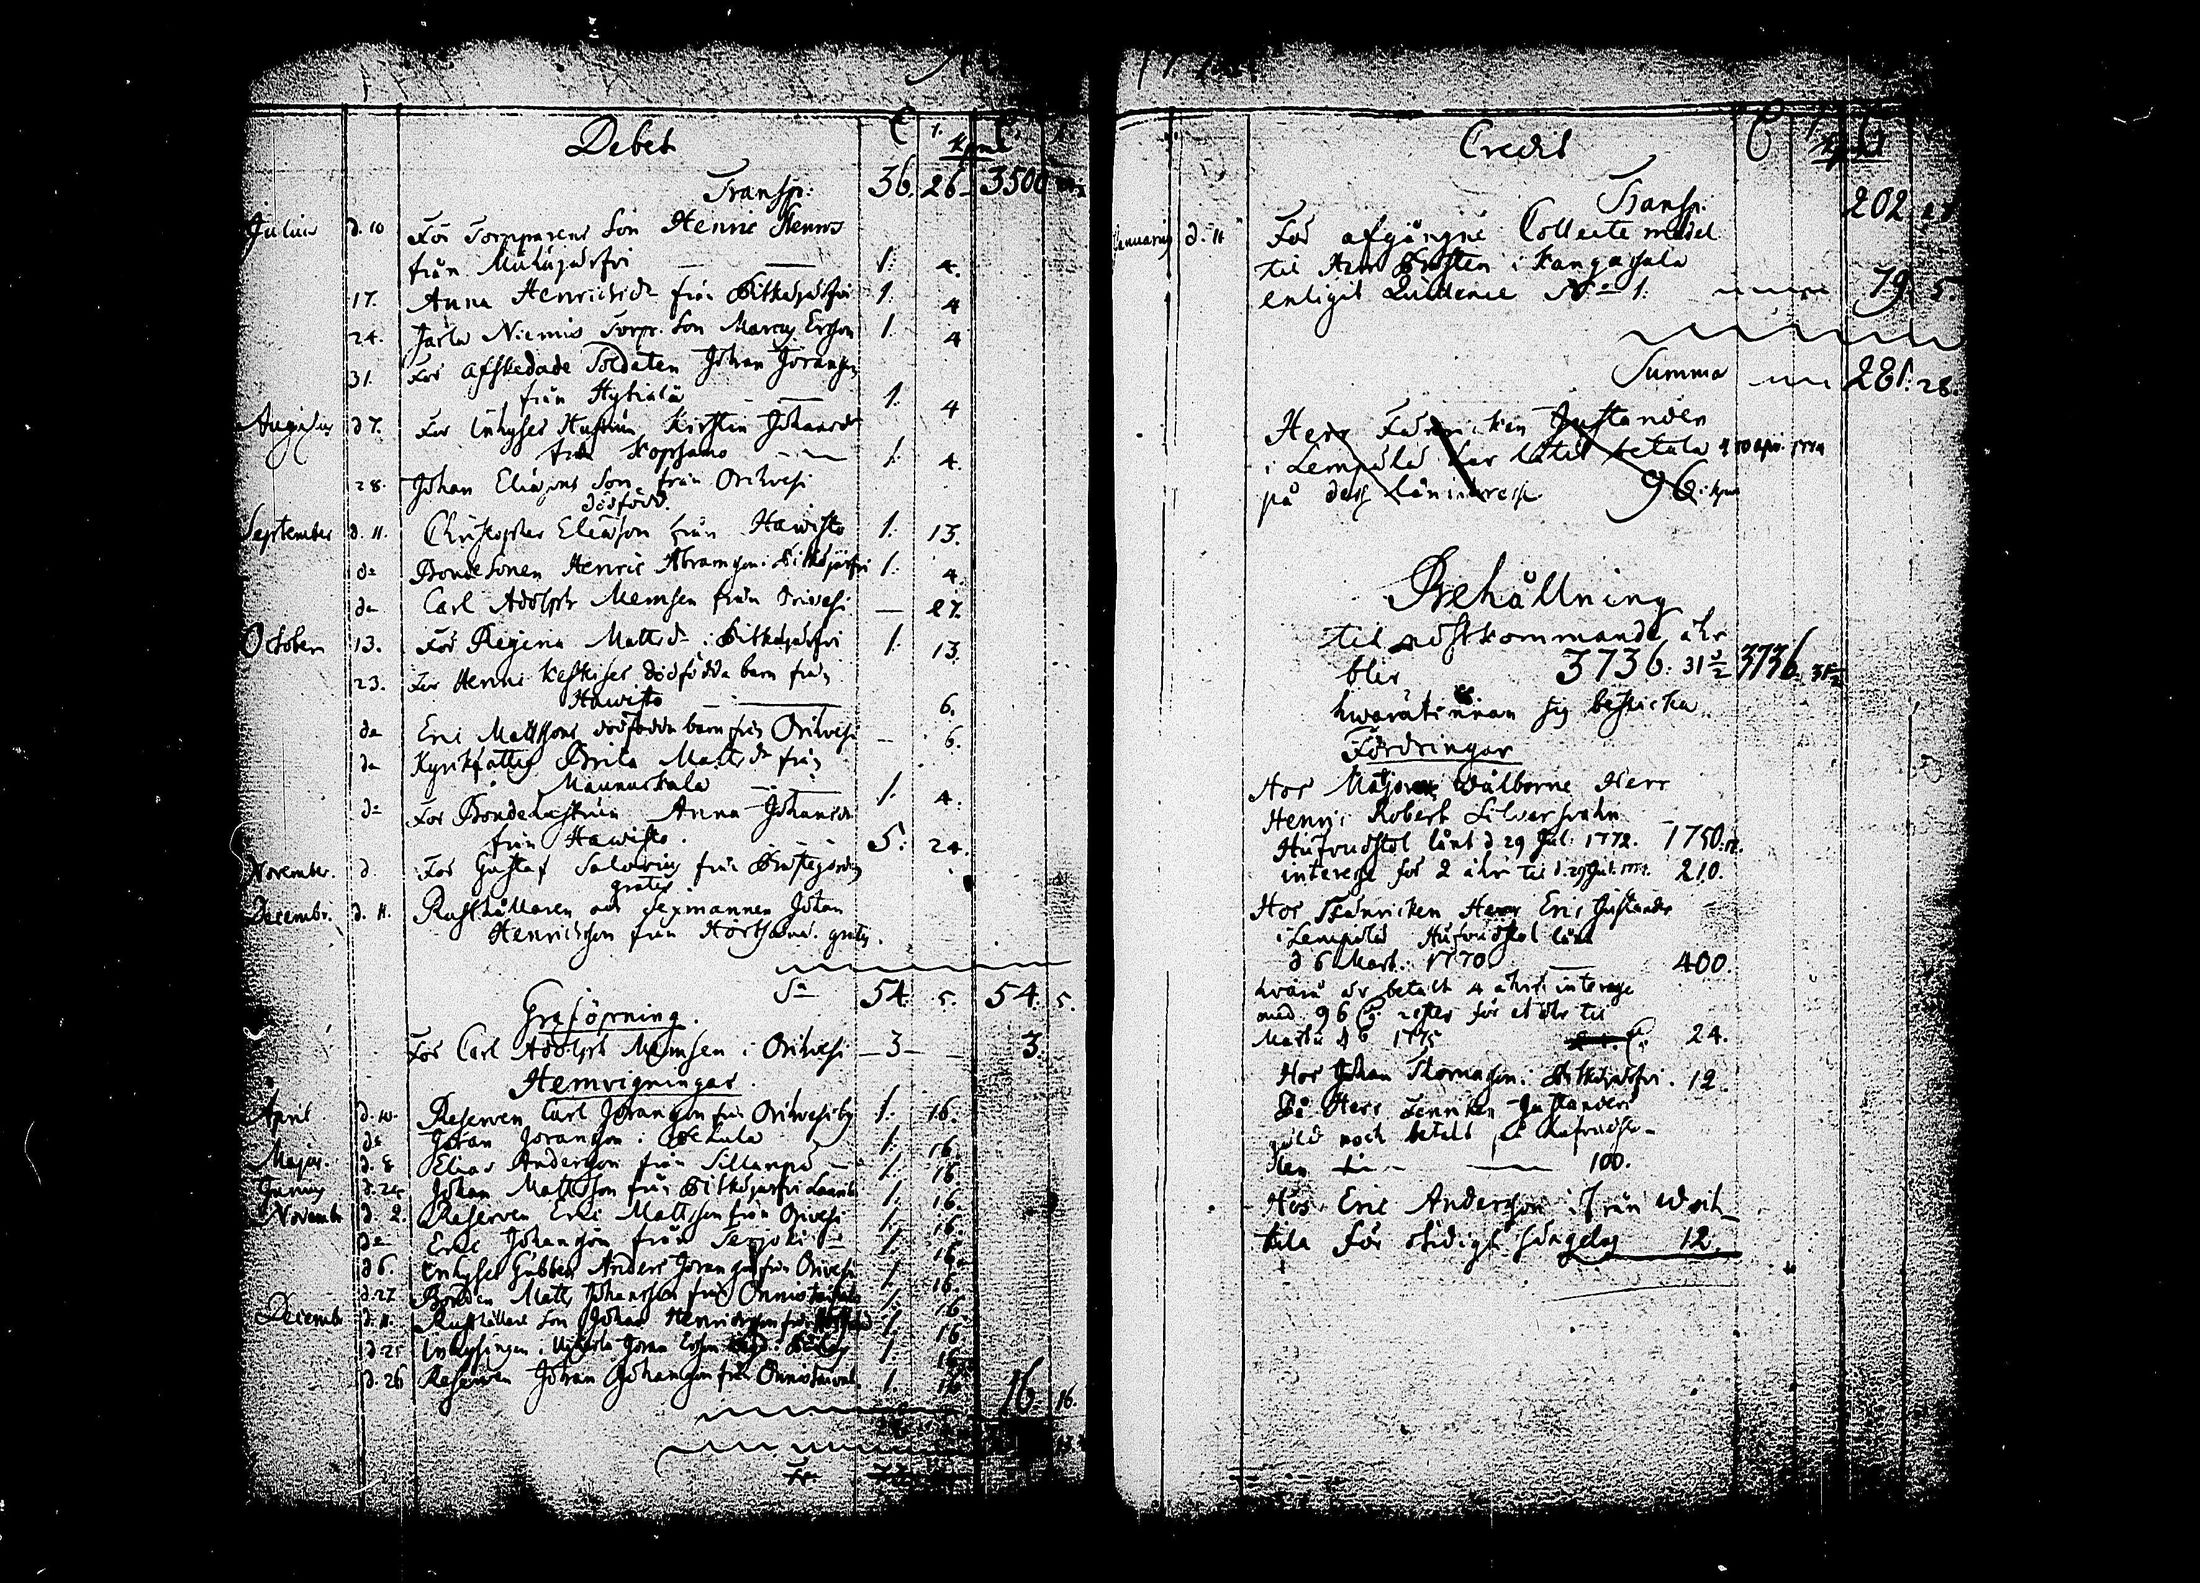 Debet
Transp: 36. 26. 3500
Julius d. 10 För Torpparens Son Henric Henrics
från Muhujärfvi 1. 4.
17. Anna Henricsdr från Pitkäjärfvi 1. 4
24. Jarla Niemis Torp. Son Marcus Ersson 1. 4
31. För afskedade Soldaten Johan Göransson
från Hytialä 1. 4
Augustus d 7. För Inhyses Hustrun Kirstin Johansdr
från Kopsamo 1. 4.
28. Johan Eliæsons Son från Orihvesi
dödfödd.
September d. 11. Christopher Eliæson från Hawisto 1. 13.
do Bonde Sonen Henric Abramsson i Pitkäjärfvi 1. 4.
do Carl Adolph Memsen från Orivesi — 27.
October 13. För Regina Mattsdr i Pitkäjärfvi 1. 13.
23. För Henric Keskises dödfödda barn från
Hawisto 6.
do Eric Mattssons dödfödda barn från Orihvesi — 6.
do Kyrkfattig Brita Mattsdr från
Maunuskala 1. 4.
do För Bondehustrun Anna Johansdr
från Hawisto. 5. 24.
November. d. För Gustaf Salovius från Prästegården
gratis.
Decembr. d. 11. Rusthållaren och Sexmannen Johan
Henricsson från Hörtsänä. gratis.
Sa 54. 5. 54. 5.
Graföpning.
För Carl Adolph Memsen i Orihvesi — 3 — 3.
Hemvigningar.
April d. 10. Reserven Carl Göransson från Orihvesi by 1. 16.
do Johan Göransson i 1. 16.
Majus. d. 8 Elias Andersson från Sillanpä 1. 16.
Junius d. 24 Johan Mattsson från Pitkäjärfvi 1. 16.
Novembr d. 2. Reserven Eric Mattsson från Orivesi 1. 16.
do Eric Johansson från 1. 16.
d 6. Inhyses Gubben Anders Göransson från Orivesi 1. 16
d. 27. Bonden Matts Johansson från 1. 16
Decembr d. 11. Rusthållare Son Johan Henricsson från 1. 16
d 25 Inhysingen i Göran Ersson 1. 16
d. 26 Reserven Johan Johansson från 1. 16 16. 16.
Credit
Transp. 202.
Januarius d. 11 För afgångne Collecte medel
til Herr Prosten i Kangasala
enligit Quittence No 1. 79. 5.
Summa 281. 28.
Herr Fänricken Gustander
i Lempälä har låtit betala d 10 Apr. 1774
på dess lån interesse 96. kpmt
Behållning
til nästkommande åhr
blir 3736. 31 1/2 3736. 31 1/2
hwarutinnan sig besticka
Fordringar
Hos Majoren Wälborne Herr
Henric Robert Silversvahn
Hufvudstol lånt d. 29 Jul. 1772. 1750.
interesse för 2 åhr til d. 29 Jul. 1774. 210.
Hos Fänricken Herr Eric Gustander
i Lempälä Hufvudstol lånt
d 6 Mart. 1770 400.
hvaraf är betalt 4 åhrs interesse
med 96 för et åhr til
Martii d 6 1775 24.
Hos Johan Thomasson i Pitkäjärfvi. 12.
På Herr Fenriken Gustanders
guld noch betalt på Hufvudsto-
len 100.
Hos Eric Andersson ifrån
kila för oskidigt sängelag 12.